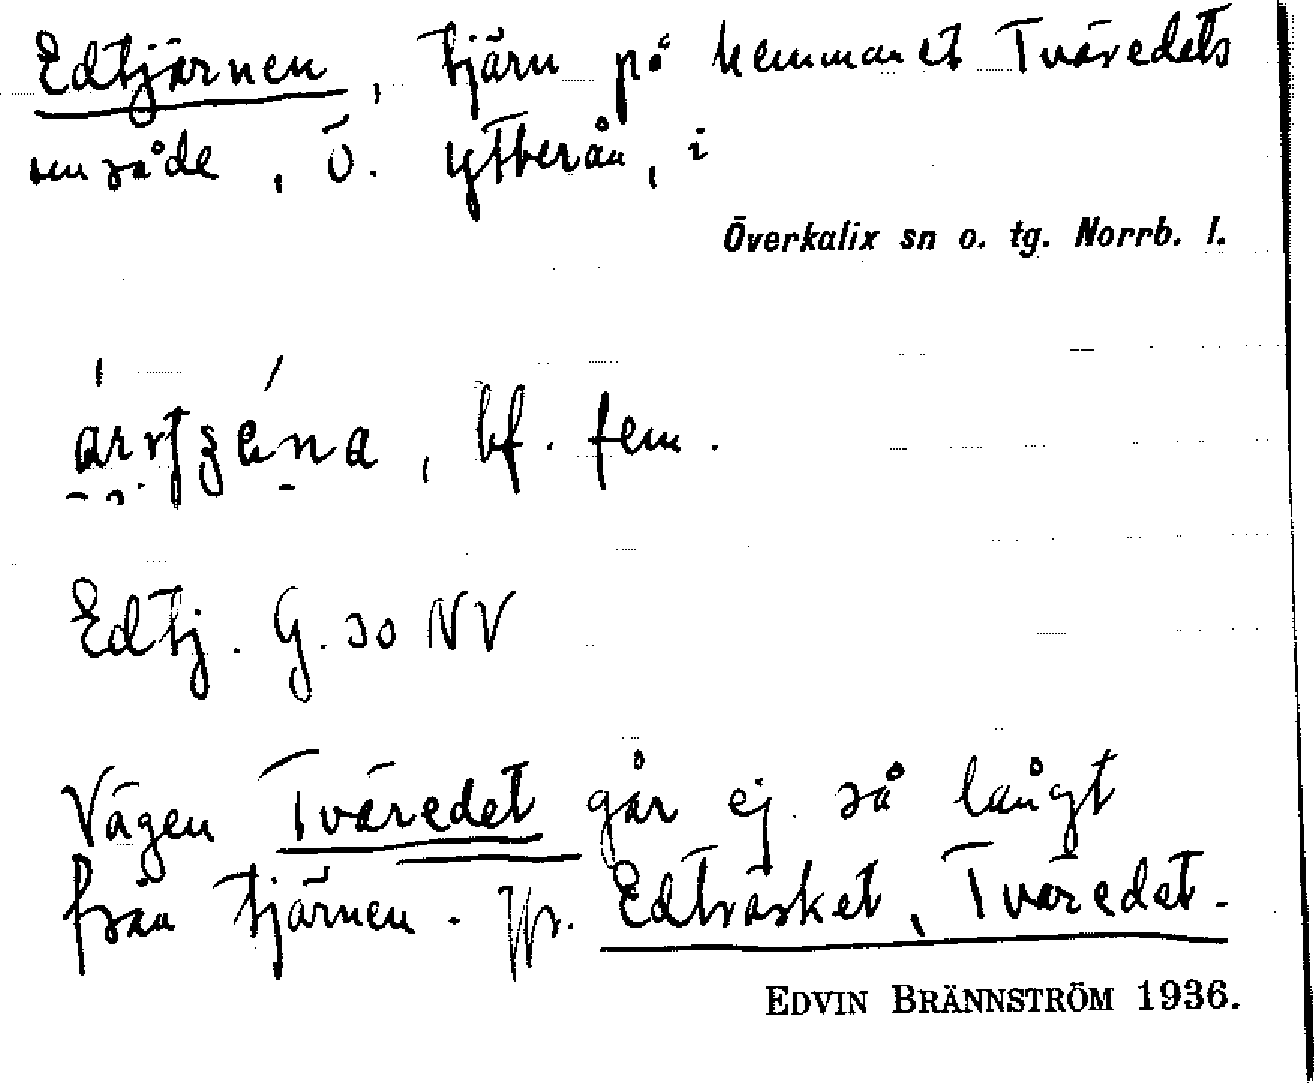 Edtjärnen, tjärn på hemmanet Tväredets
område, ö. Ytterån, i
Överkalix sn o. tg. Norrb. l.
, bf. fem.
Edtj. G. 30 NV
Vägen Tväredet går ej så långt
från tjärnen. Jfr. Edträsket, Tväredet.
EDVIN BRÄNNSTRÖM 1936.